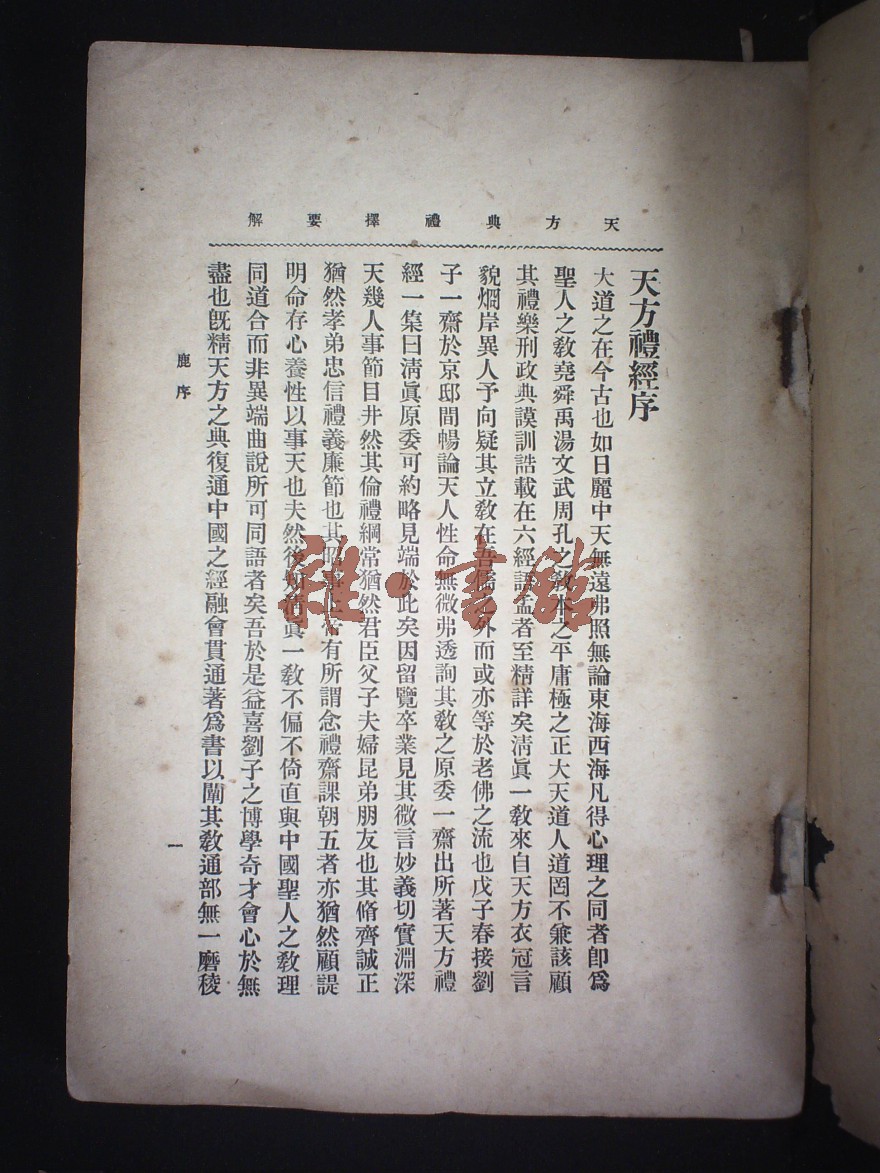 天方典禮擇要解
天方禮經序
大道之在今古也如日麗中天無遠弗照無論東海西海凡得心理之同者卽爲
聖人之敎堯舜禹湯文武周孔之敎本之平庸極之正大天道人道罔不兼該顧
其禮樂刑政典謨訓誥載在六經語孟者至精詳矣淸眞一敎來自天方衣冠言
貌烱岸異人予向疑其立敎在吾儒之外而或亦等於老佛之流也戊子春接劉
子一齋於京邸間暢論天人性命無微弗透詢其敎之原委一齋出所著天方禮
經一集曰淸眞原委可約略見端於此矣因留覽卒業見其微言妙義切實淵深
天幾人事節目井然其倫禮綱常猶然君臣父子夫婦昆弟朋友也其脩齊誠正
猶然孝弟忠信禮義廉節也其昭事上帝有所謂念禮齋課朝五者亦猶然顧諟
明命存心養性以事天也夫然後知淸眞一敎不偏不倚直與中國聖人之敎理
同道合而非異端曲說所可同語者矣吾於是益喜劉子之博學奇才會心於無
盡也旣精天方之典復通中國之經融會貫通著爲書以闡其敎通部無一磨稜
鹿序
一
雅·書館